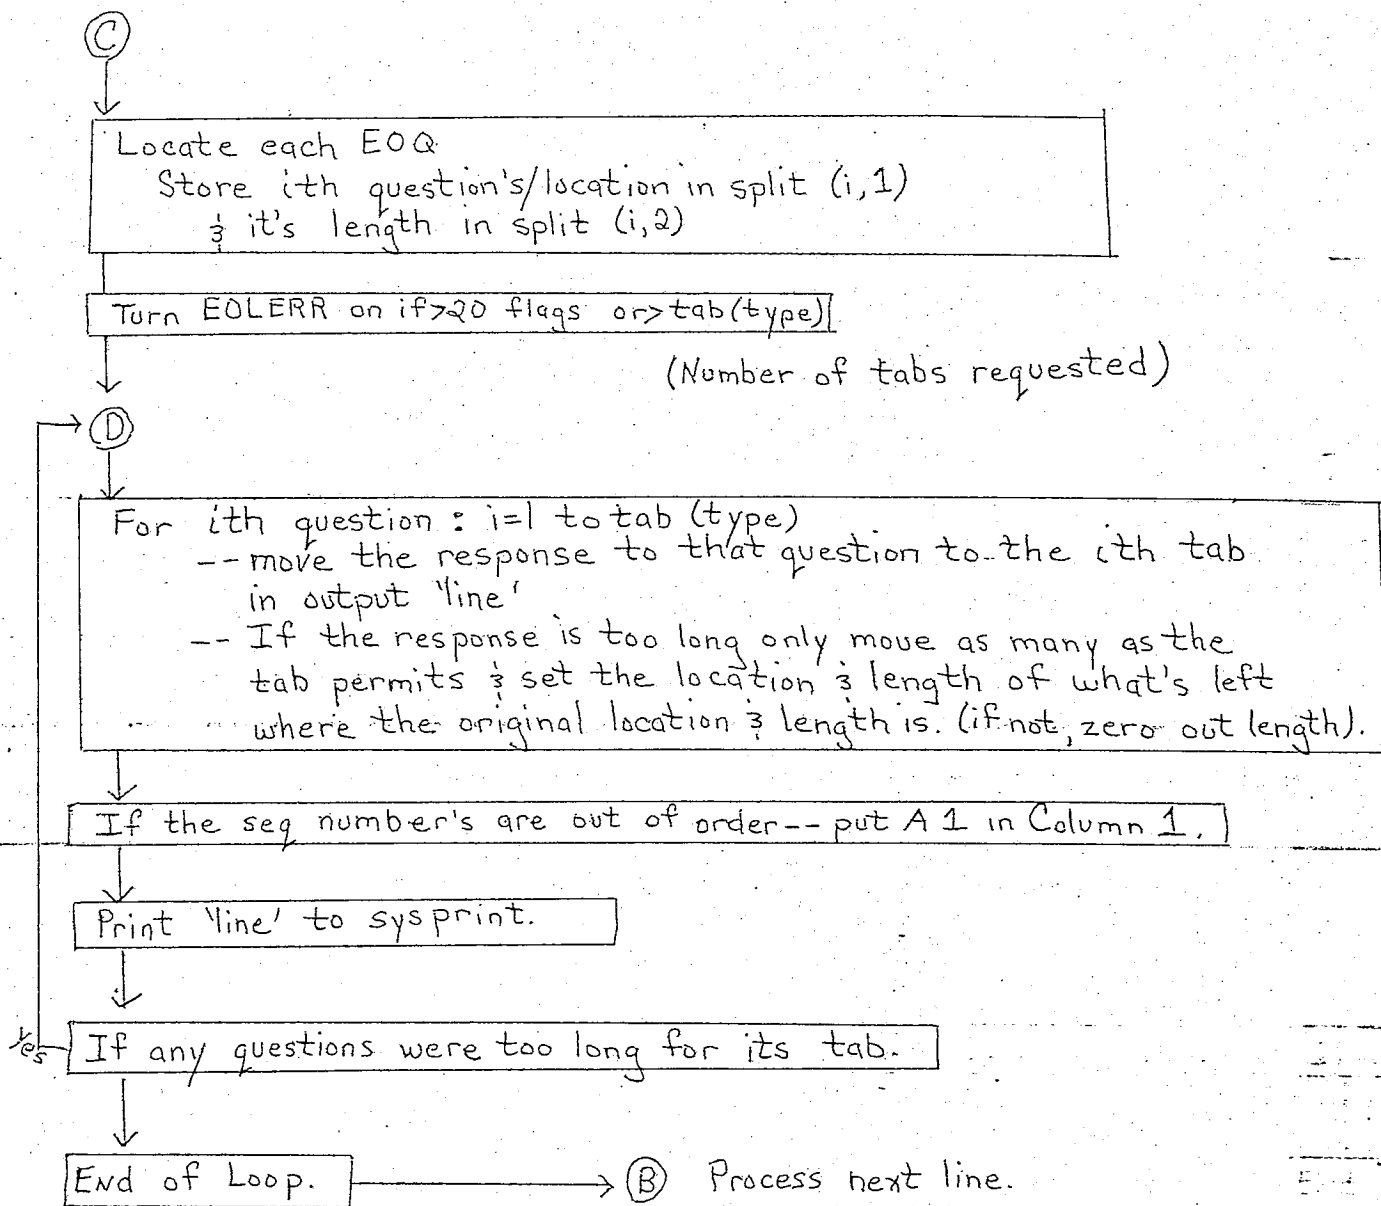 C
Locate each EOQ
Store ith question's/location in split (i,1)
& it's length in split (i,2)
Turn EOLERR on if >20 flags or > tab(type)
(Number of tabs requested)
D
For ith question : i=1 to tab (type)
-- move the response to that question to the ith tab
in output 'line'
-- If the response is too long only move as many as the
tab permits & set the location & length of what's left
where the original location & length is. (if not, zero out length).
If the seq number's are out of order -- put A 1 in Column 1.
Print 'line' to sysprint.
Yes
If any questions were too long for its tab.
End of Loop.
B Process next line.